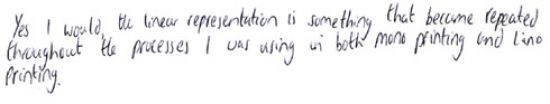 Yes I would, the linear representation is something that became repeated
throughout the processes I was using in both mono printing and Lino
Printing.